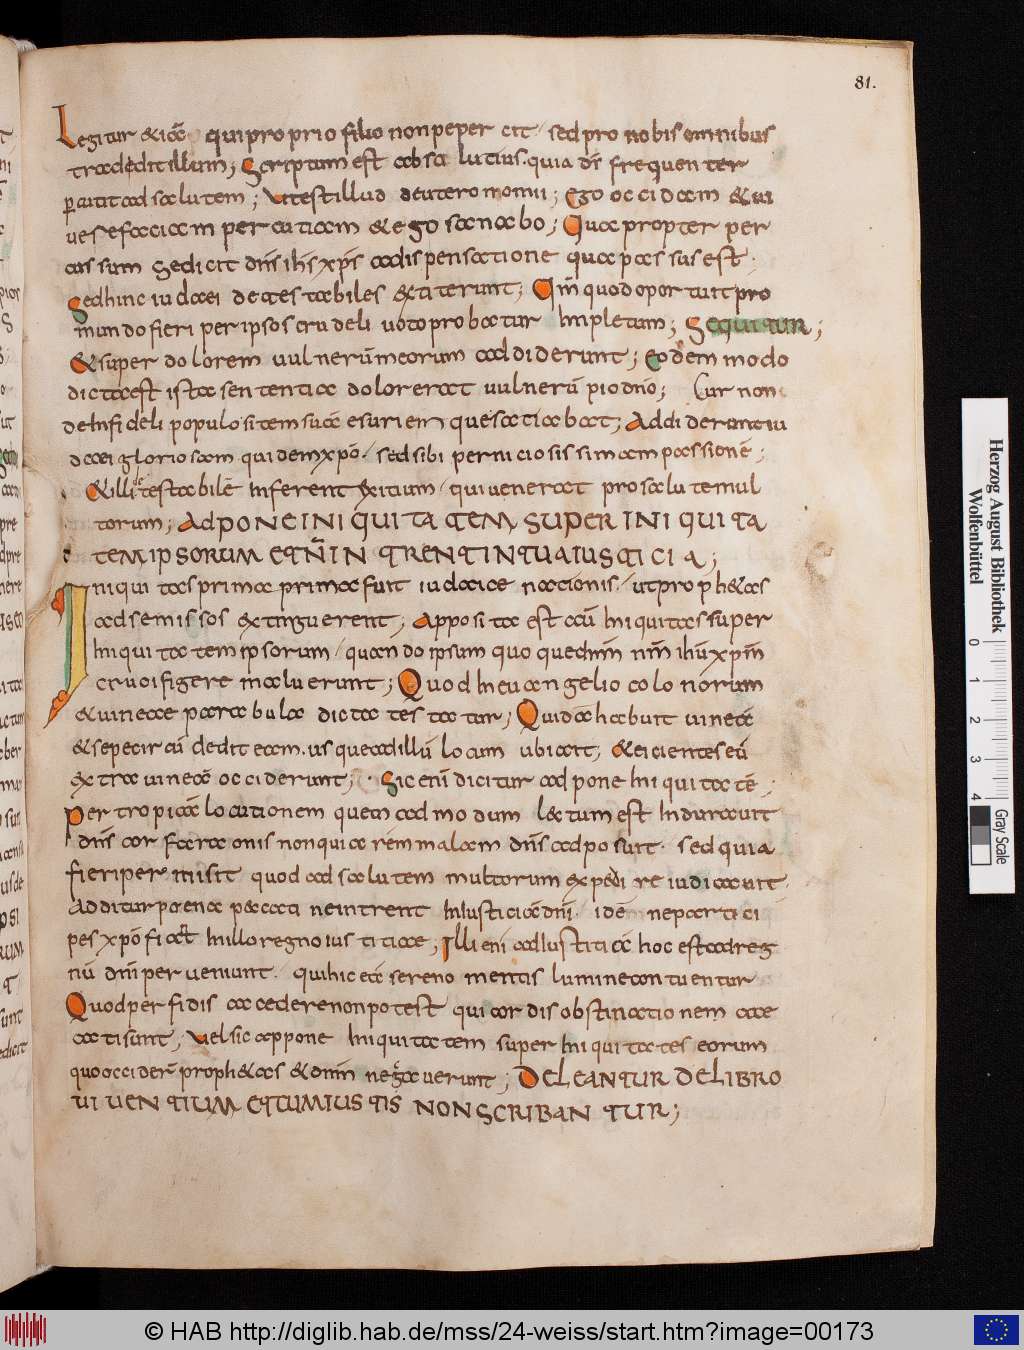 81.
Legitur & iā qui proprio filio non pepercit sed pro nobis omnibus
tradedit illum; Scriptum est absa lutius. quia dī frequenter
ꝑcutit ad salutem; Vt est illud deuteronomii; ego occidam & ui
uesefaciam percutiam & ego sanabo; Quapropter per
cussum se dicit dn̄s ih̄s xp̄s addispensatione qua passus est.
Sed hinc iudaei detestabiles extiterunt; Qm̄ quod oportuit pro
mundo fieri per ipsos crudeli uoto probatur Impletum; Sequitur;
& super dolorem uulnerū meorum addiderunt; Eodem modo
dicta est ista sententia dolorerat uulnerū pio dn̄o; Cur non
de Infideli populo sitem suā esuriem que satiabat; Addiderunt iu
daei gloriosam quidem xp̄o. sed sibi perniciosissimam passionē;
& illi testabilē Inferent exitium. qui uenerat pro salute mul
torum; ADPONE INIQUITATEM SUPER INIQUITA
TEM IPSORUM ET N̄ IN TRENT IN TUA IUSTICIA;
Iniquitas prima prima fuit iudaice nacionis. ut proph&as
ad se missos extinguerent; Apposita est acū Iniquitas super
Iniquitatem ipsorum. quando ipsum quoque dn̄m nr̄m ih̄u xp̄m
crucifigere maluerunt; Quod In euangelio colonorum
& uineae parabula dicta testatur; Quidā habuit uineā
& sepe circū dedit eam. usque ad illū locum ubi ait; & eicientes eū
extra uineā occiderunt; Sic enī dicitur adpone Iniquitatē;
Per tropicā locutionem quem admodum lectum est Indurauit
dn̄s cor faraonis non quia rem malam dn̄s adposuit. sed quia
fieri permisit quod ad salutem multorum expedire iudicauit.
Additur poena peccati ne intrent In Iusticiā dn̄i. idē ne partici
pes xp̄o fiat In illo regno iustitiae; Illi enī ad Iustitiā hoc est ad reg
nū dn̄i perueniunt. qui hic eā sereno mentis lumine contuentur
Quod perfidis accedere non potest qui cordis obstinationem caae
cati sunt; Vel sic appone Iniquitatem super Iniquitates eorum
quo occider̄ proph&as & dn̄m negauerunt; DELEANTUR DE LIBRO
UIUENTIUM ET CUM IUSTIS NON SCRIBANTUR;
Herzog August Bibliothek
Wolfenbüttel
0 1 2 3 4
Gray Scale
© HAB http://diglib.hab.de/mss/24-weiss/start.htm?image=00173